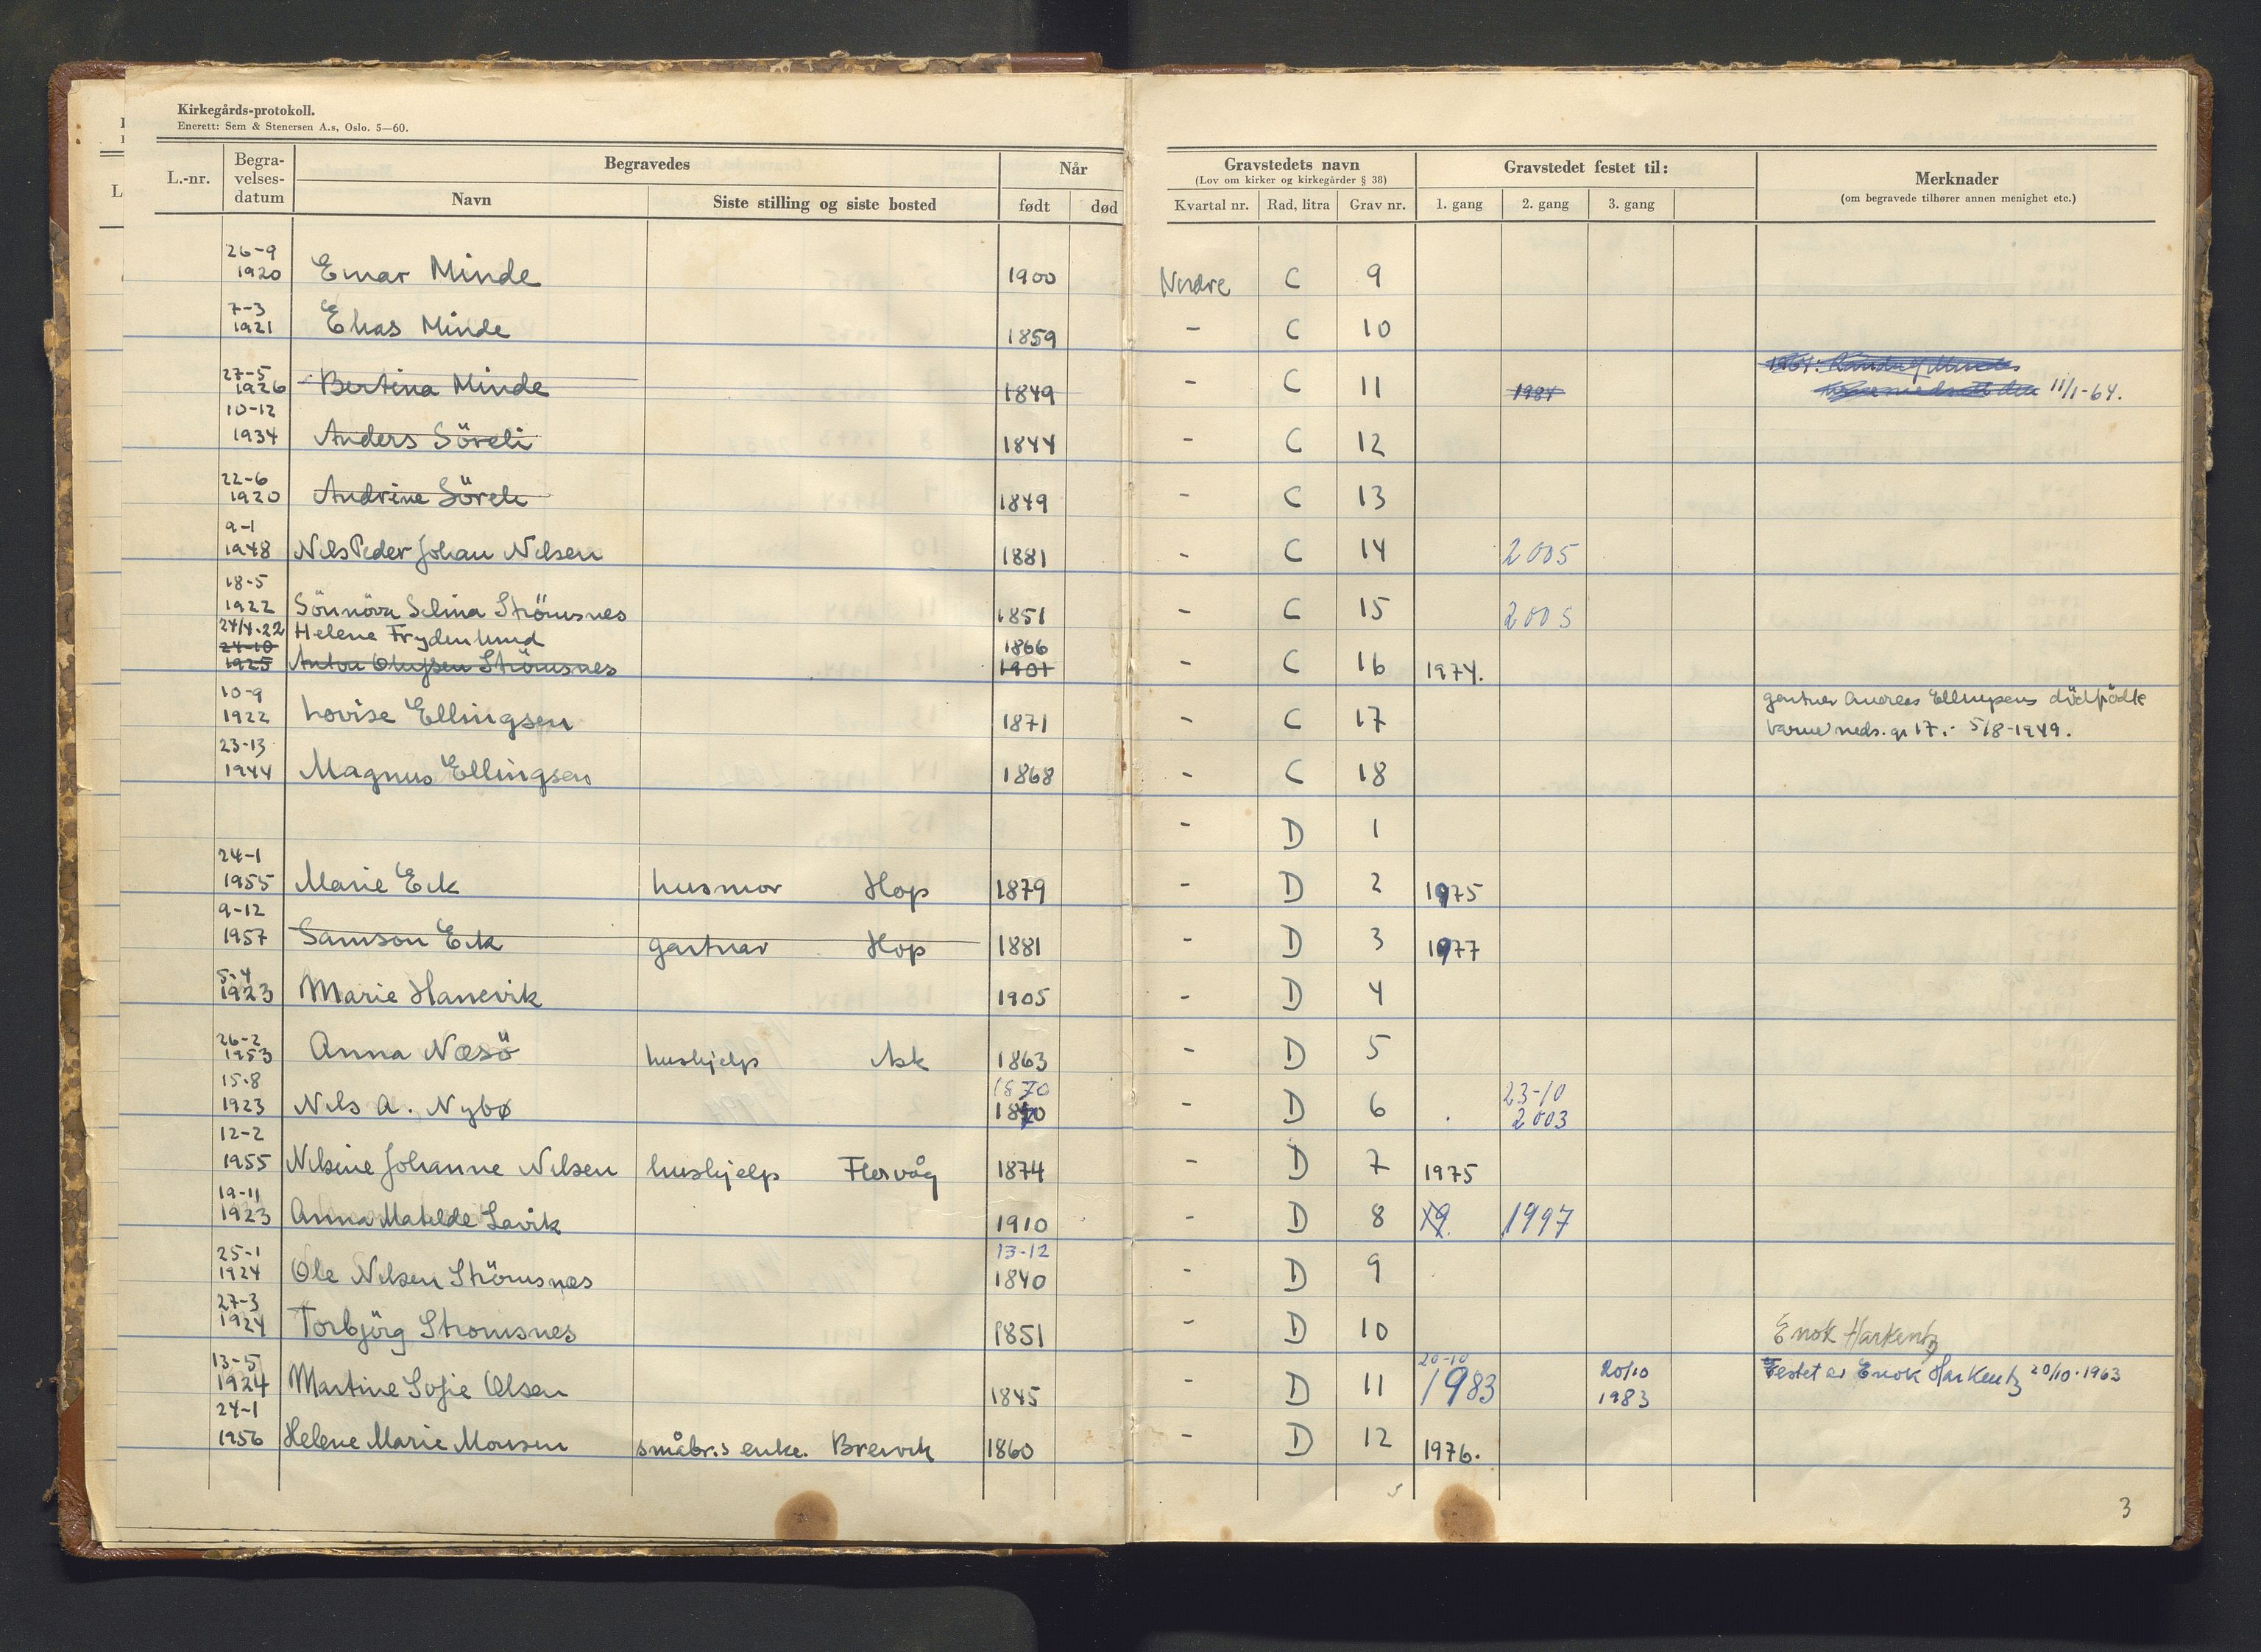 Kirkegårds-protokoll.
Enerett: Sem & Stenersen A.s, Oslo. 5—60.
L.-nr. Begra-velses-datum Begravedes Når Gravstedets navn Gravstedet festet til: Merknader
(Lov om kirker og kirkegårder § 38) (om begravede tilhører annen menighet etc.)
Navn Siste stilling og siste bosted født død Kvartal nr. Rad, litra Grav nr. 1. gang 2. gang 3. gang
26-9
1920 Einar Minde 1900 Nordre C 9
7-3
1921 Elias Minde 1859 - C 10
27-5
1926 Bertina Minde 1849 - C 11 1984 11/1-64.
10-12
1934 Anders Söreli 1844 - C 12
22-6
1920 Andrine Söreli 1849 - C 13
9-1
1948 Nils Peder Johan Nilsen 1881 - C 14 2005
18-5
1922 Sönnöva Selina Strömsnes 1851 - C 15 2005
24/4.22 Helene Frydenlund 1866
24-10
1925 Anton Olufsen Strömsnes 1901 - C 16 1974.
10-9
1922 Lovise Ellingsen 1871 - C 17 gartner Andreas Ellingsens dödfödte
barne neds. gr 17. - 5/8-1949.
23-13
1944 Magnus Ellingsen 1868 - C 18
- D 1
24-1
1955 Marie Eik husmor Hop 1879 - D 2 1975
9-12
1957 Samson Eik gartner Hop 1881 - D 3 1977
5-4
1923 Marie Hanevik 1905 - D 4
26-2
1953 Anna Næsö hushjelp Ask 1863 - D 5
15-8 1870 23-10
1923 Nils A. Nybø - D 6 2003
12-2
1955 Nilsine Johanne Nilsen hushjelp Florvåg 1874 - D 7 1975
19-11
1923 Anna Matilde Lavik 1910 - D 8 19. 1997
25-1 13-12
1924 Ole Nilsen Strömsnes 1840 - D 9
27-3
1924 Torbjörg Stromsnes 1851 - D 10 Enok Harkentz
13-5 20-10 20/10
1924 Martine Sofie Olsen 1845 - D 11 1983 1983 Festet av Enok Harkentz 20/10-1963
24-1
1956 Helene Marie Monsen småbr.s enke. Breivik 1860 - D 12 1976.
3